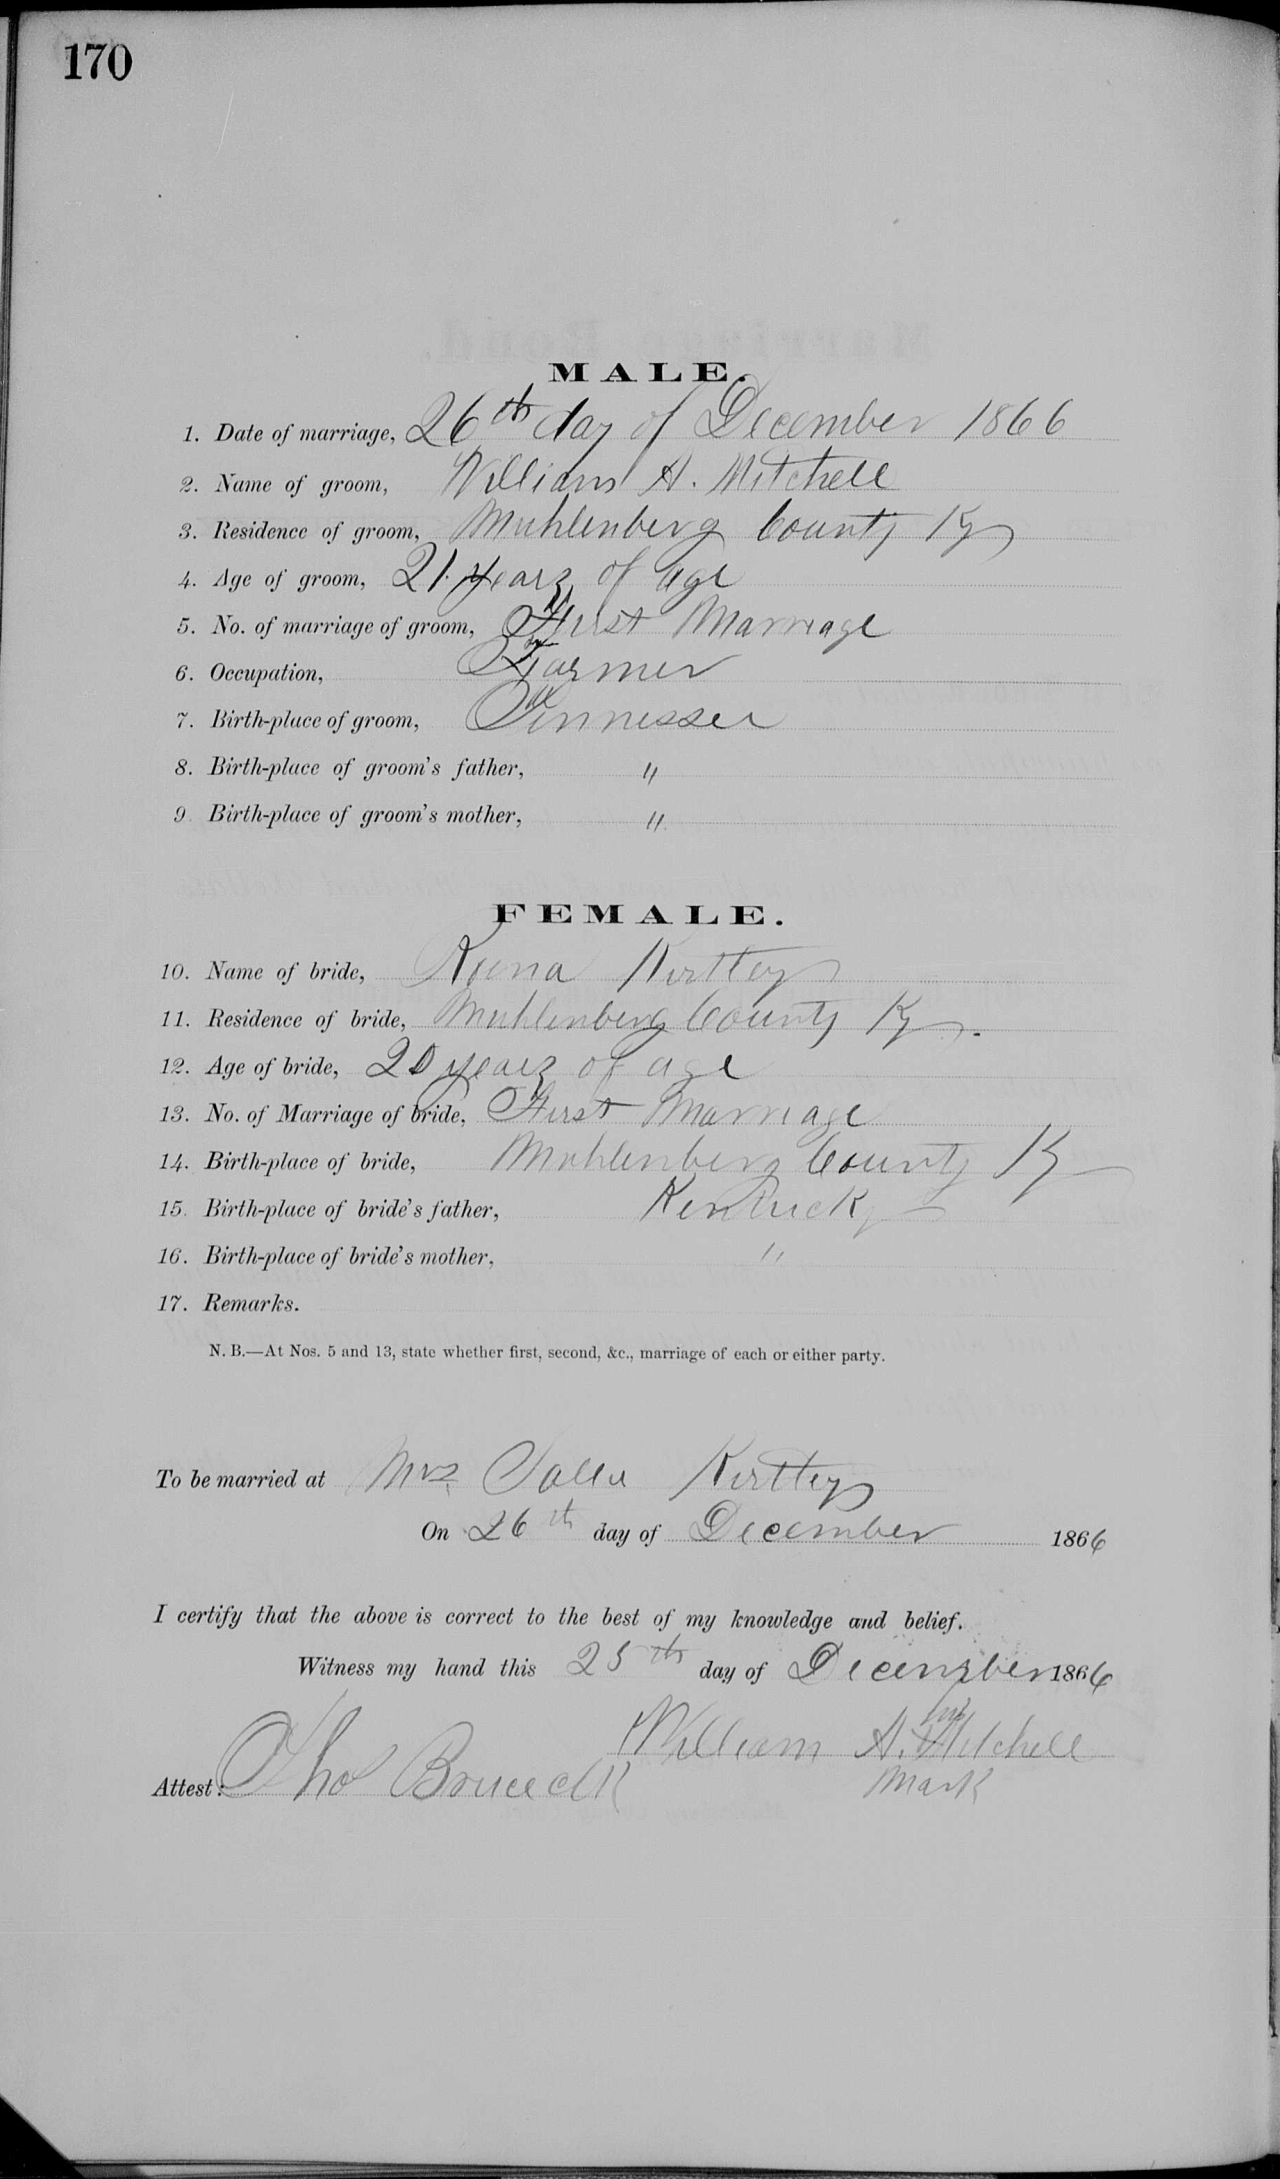 170
MALE.
1. Date of marriage, 26th day of December 1866
2. Name of groom, William A. Mitchell
3. Residence of groom, Muhlenberg County Ky
4. Age of groom, 21 years of age
5. No. of marriage of groom, First Marriage
6. Occupation, Farmer
7. Birth-place of groom, Tennessee
8. Birth-place of groom's father, "
9 Birth-place of groom's mother, "
FEMALE.
10. Name of bride, Kirtley
11. Residence of bride, Muhlenberg County Ky.
12. Age of bride, 20 years of age
13. No. of Marriage of bride, First Marriage
14. Birth-place of bride, Muhlenberg County Ky
15. Birth-place of bride's father, Kentucky
16. Birth-place of bride's mother, "
17. Remarks.
N. B.—At Nos. 5 and 13, state whether first, second, &c., marriage of each or either party.
To be married at Mrs. Kirtleys
On 26th day of December 1866
I certify that the above is correct to the best of my knowledge and belief.
Witness my hand this 25th day of December 1866
William A. Mitchell
Attest: Tho Bruce clk
mark